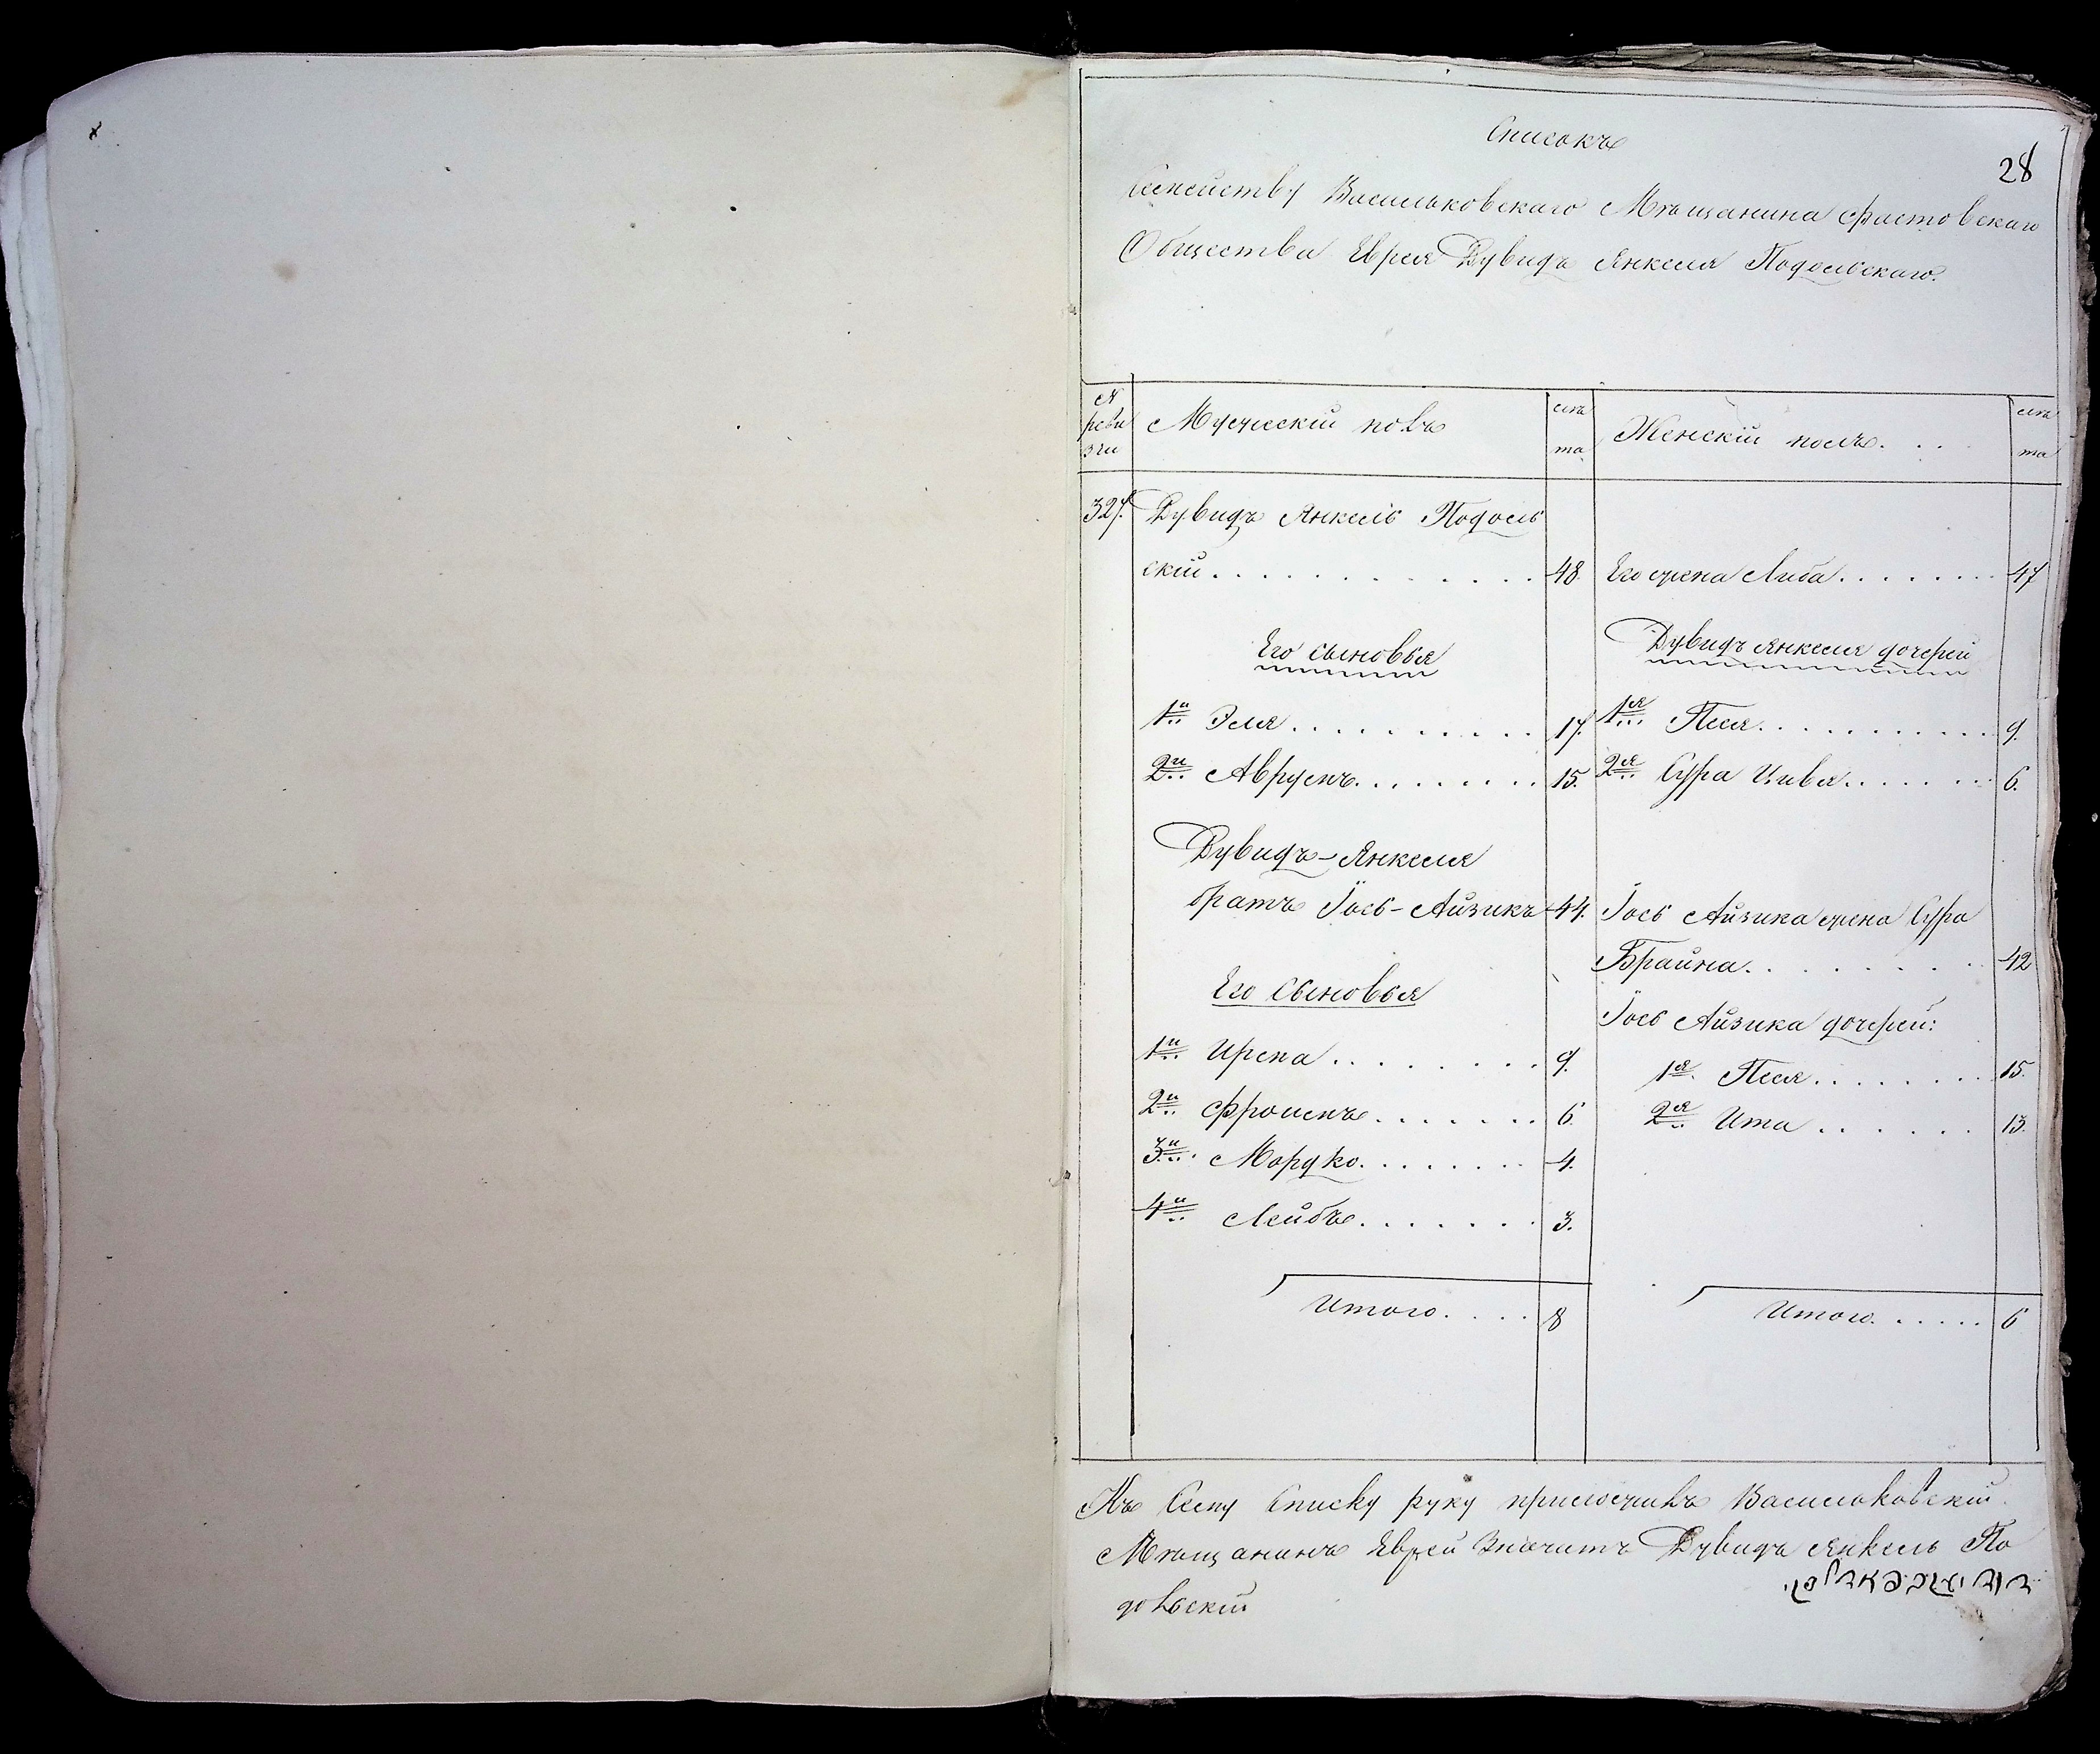 Списокъ
28
Семейству Васильковскаго Мѣщанина Фастовскаго
Общества Еврея Дувидъ Янкеля Подольскаго.
№ реви зіи
Мужескій полъ
лѣ та
Женскій полъ. . .
лѣ та
327. Дувидъ Янкель Подоль
скій . . . . . . . . . . . . 48. Его жена Либа . . . . . . . 47
Его сыновья
Дувидъ Янкеля дочерей
1й Эля . . . . . . . . . . 17. 1я Песя . . . . . . . . . . . 9.
2й Аврумъ . . . . . . . . 15. 2я Сура Цивя . . . . . . 6.
Дувидъ-Янкеля
братъ Іось-Айзикъ 44. Іось Айзика жена Сура
Брайна . . . . . . . . 42
Его Сыновья
Іось Айзика дочерей:
1й Ирена . . . . . . . 9. 1я Песя . . . . . . . 15.
2й Фроимъ . . . . . . . 6. 2я Ита . . . . . . 13.
3й Мордко . . . . . . . 4.
4й Лейбъ . . . . . . . 3.
Итого . . . . 8 Итого . . . . . 6
Къ Сему Списку руку приложилъ Васильковскій
Мѣщанинъ Еврей Значитъ Дувидъ Янкель По
дольскій